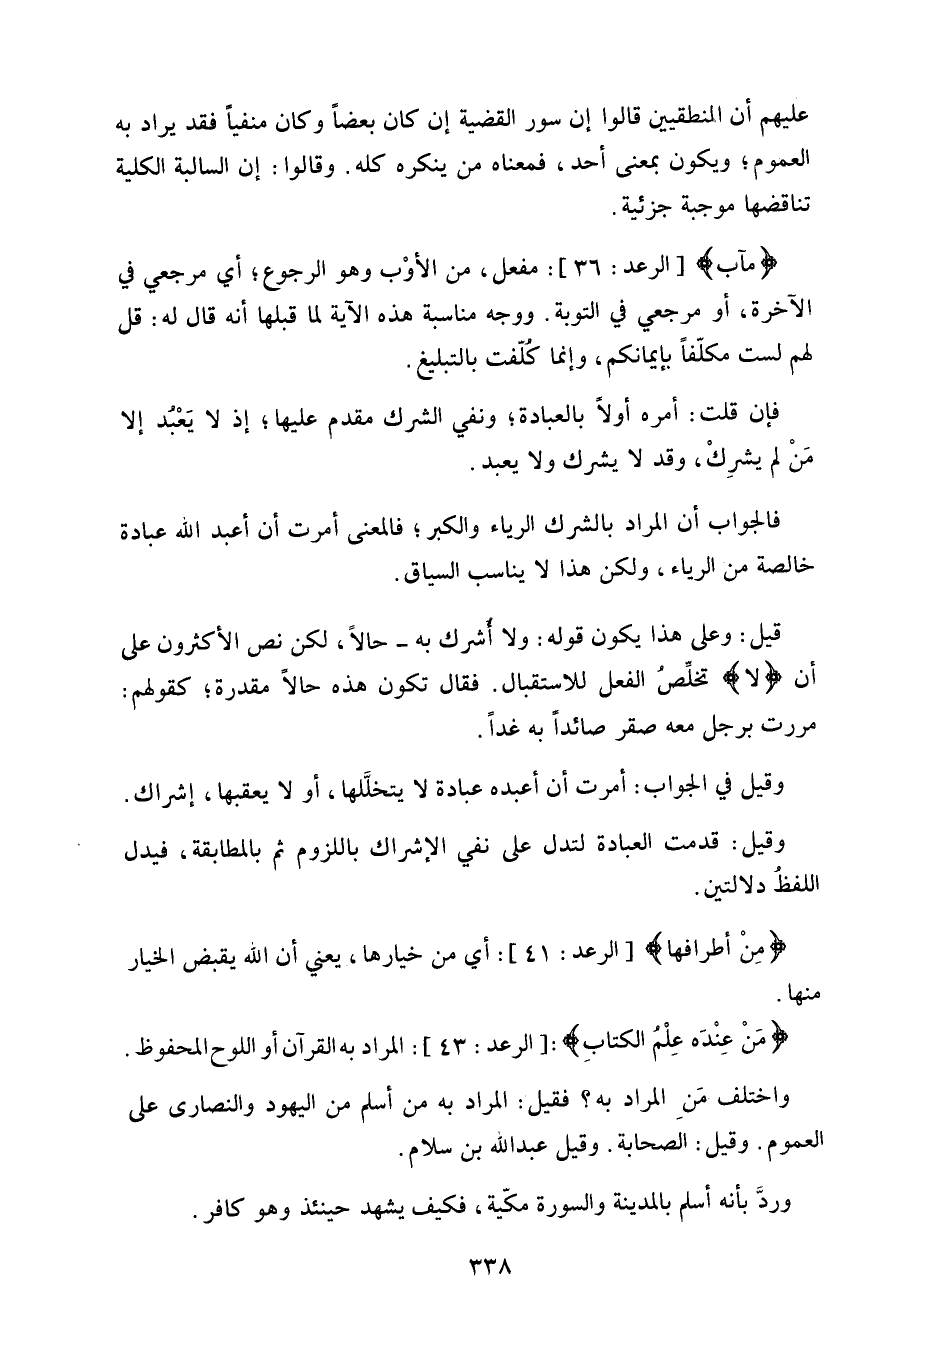 عليهم أن المنطقيين قالوا إن سور القضية إن كان بعضاً وكان منفياً فقد يراد به
العموم؛ ويكون بمعنى أحد، فمعناه من ينكره كله. وقالوا: إن السالبة الكلية
تناقضها موجبة جزئية.
﴿مآب﴾ [الرعد: ٣٦]: مفعل، من الأوْب وهو الرجوع؛ أي مرجعي في
الآخرة، أو مرجعي في التوبة. ووجه مناسبة هذه الآية لما قبلها أنه قال له: قل
لهم لست مكلّفاً بإيمانكم، وإنما كُلّفت بالتبليغ.
فإن قلت: أمره أولاً بالعبادة؛ ونفي الشرك مقدم عليها؛ إذ لا يَعْبُد إلا
مَنْ لم يشرِكْ، وقد لا يشرك ولا يعبد.
فالجواب أن المراد بالشرك الرياء والكبر؛ فالمعنى أمرت أن أعبد الله عبادة
خالصة من الرياء، ولكن هذا لا يناسب السياق.
قيل: وعلى هذا يكون قوله: ولا أُشرك به - حالاً، لكن نص الأكثرون على
أن ﴿لا﴾ تخلِّصُ الفعل للاستقبال. فقال تكون هذه حالاً مقدرة؛ كقولهم:
مررت برجل معه صقر صائداً به غداً.
وقيل في الجواب: أمرت أن أعبده عبادة لا يتخلَّلها، أو لا يعقبها، إشراك.
وقيل: قدمت العبادة لتدل على نفي الإشراك باللزوم ثم بالمطابقة، فيدل
اللفظُ دلالتين.
﴿مِنْ أطرافها﴾ [الرعد: ٤١]: أي من خيارها، يعني أن الله يقبض الخيار
منها.
﴿مَنْ عِنْدَه عِلْمُ الكتابِ﴾:[الرعد: ٤٣]: المراد به القرآن أو اللوح المحفوظ.
واختلف مَنِ المراد به؟ فقيل: المراد به من أسلم من اليهود والنصارى على
العموم. وقيل: الصحابة. وقيل عبدالله بن سلام.
وردَّ بأنه أسلم بالمدينة والسورة مكّية، فكيف يشهد حينئذ وهو كافر.
٣٣٨